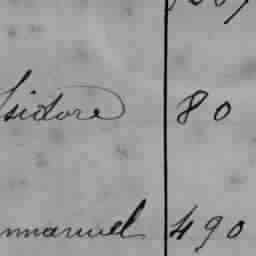 Isidore 80
mmanuel 490